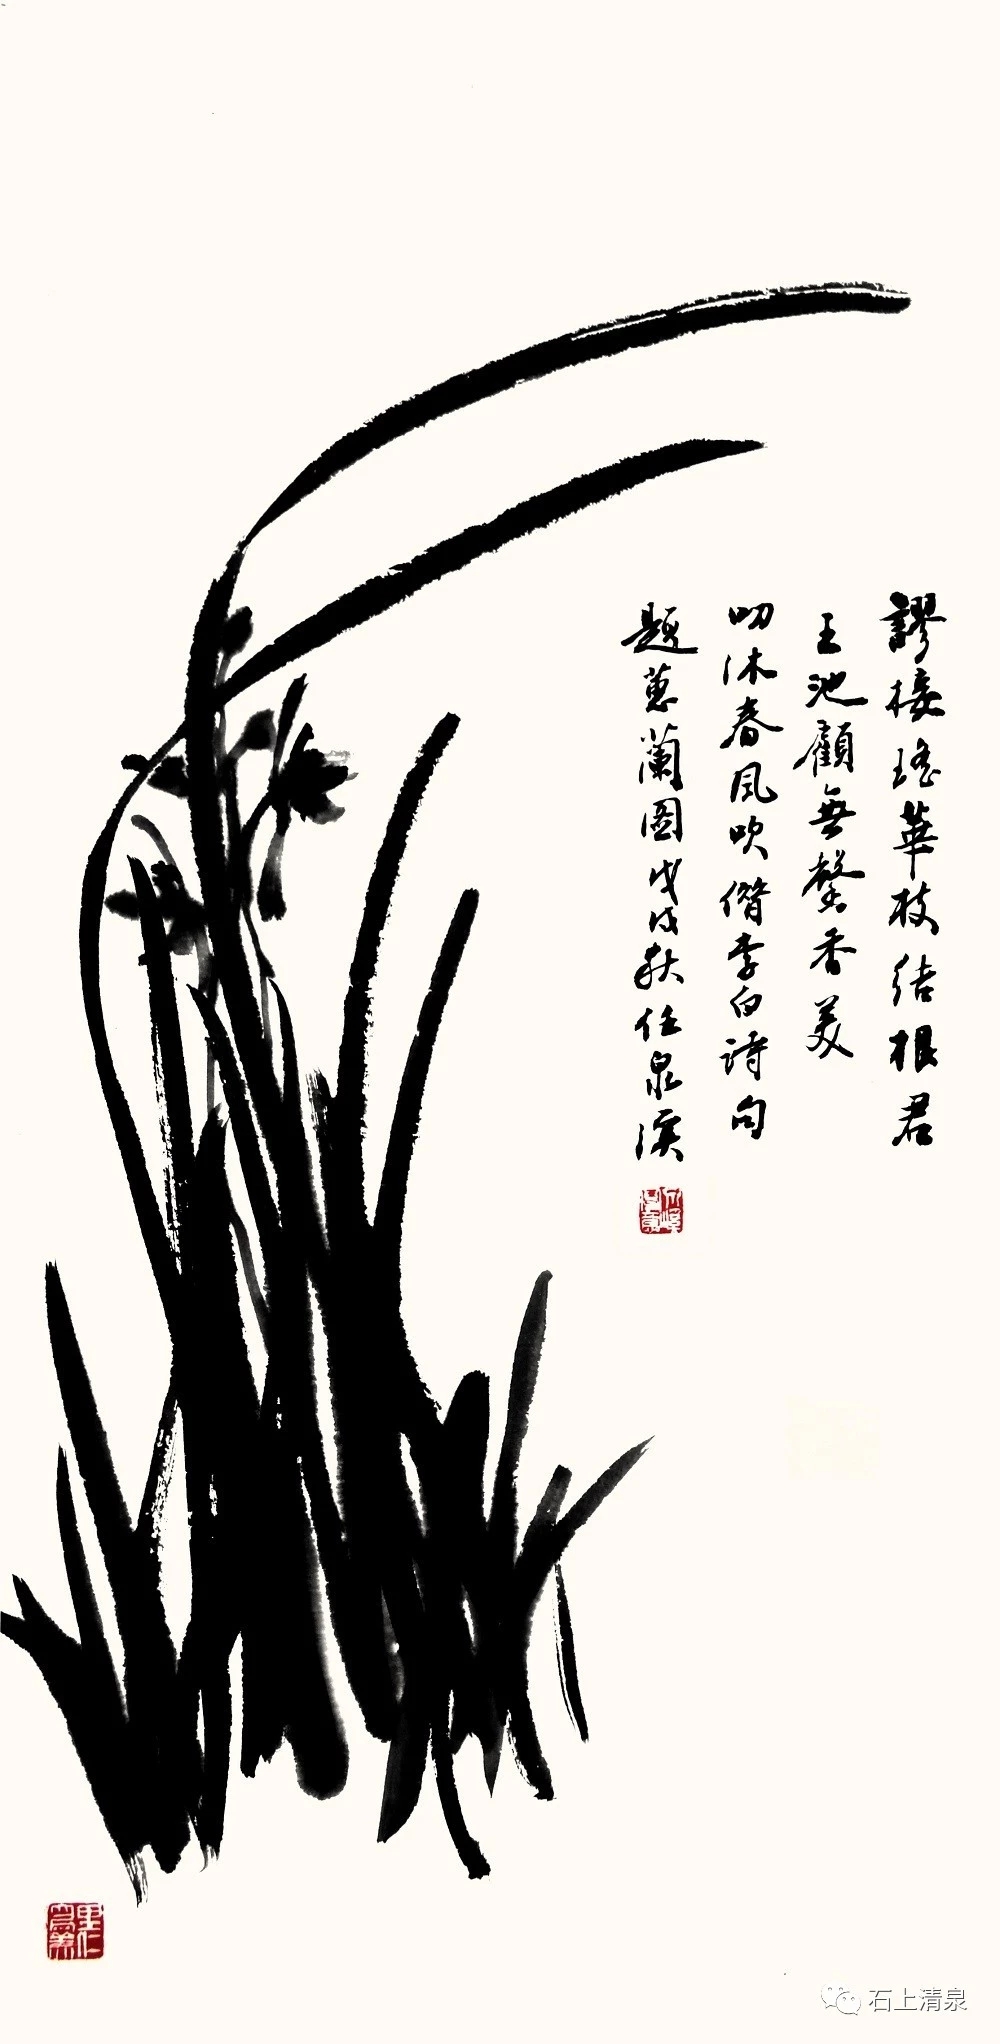 謬接瑤華枝結根君
王池顧無馨香美
叨沐春風吹借李白詩句
題蕙蘭圖戊戌秋任泉溪
里仁為美
石上清泉